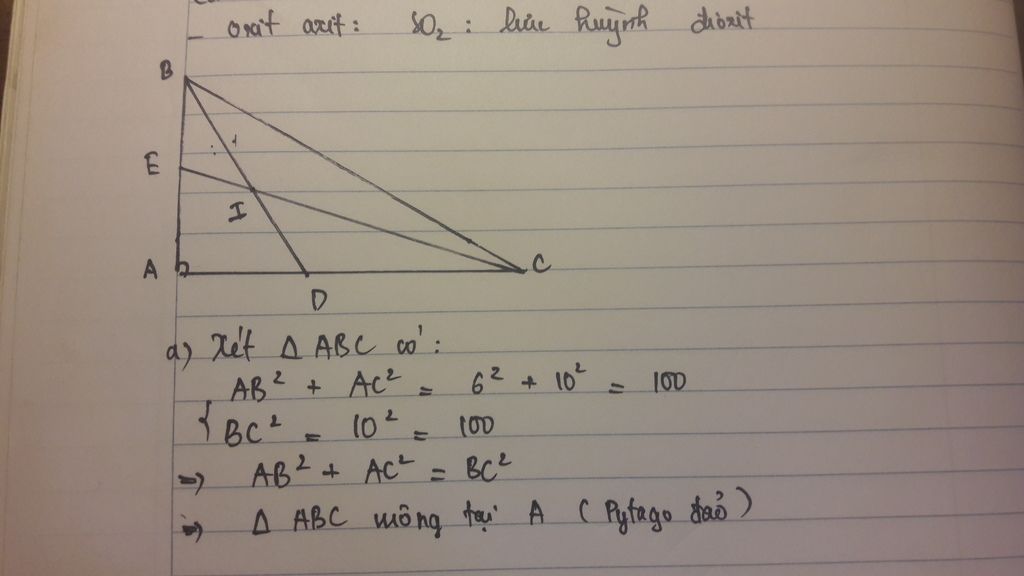 _ oxit axit: SO₂ : lưu huỳnh đioxit
B
E
I
A
C
D
a) Xét Δ ABC có:
AB² + AC² = 6² + 10² = 100
BC² = 10² = 100
=> AB² + AC² = BC²
=> Δ ABC vuông tại A (Pytago đảo)